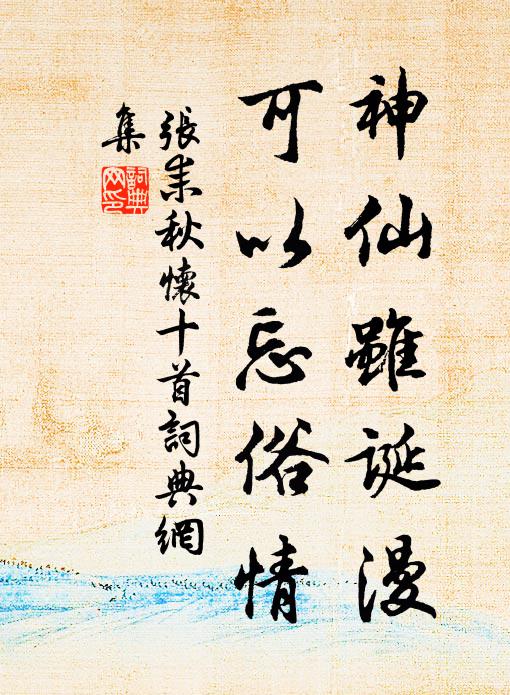 神仙雖誕漫
可以忘俗情
張耒秋懷十首詞典網
集
詞典
网印